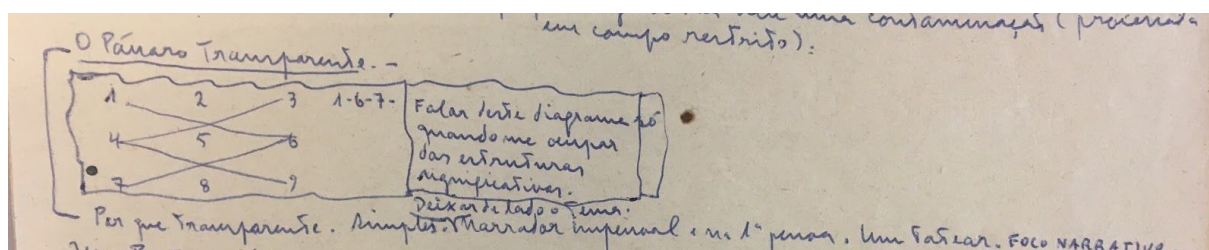 uma contaminação (processada
em campo restrito).
O Pássaro Transparente. -
1 2 3 1-6-7-
4 5 6
7 8 9
Falar deste diagrama só
quando me ocupar
das estruturas
significativas.
Deixar de lado o tema.
Por que Transparente. Simples. Narrador impessoal e na 1ª pessoa. Um Tatear. FOCO NARRATIVO